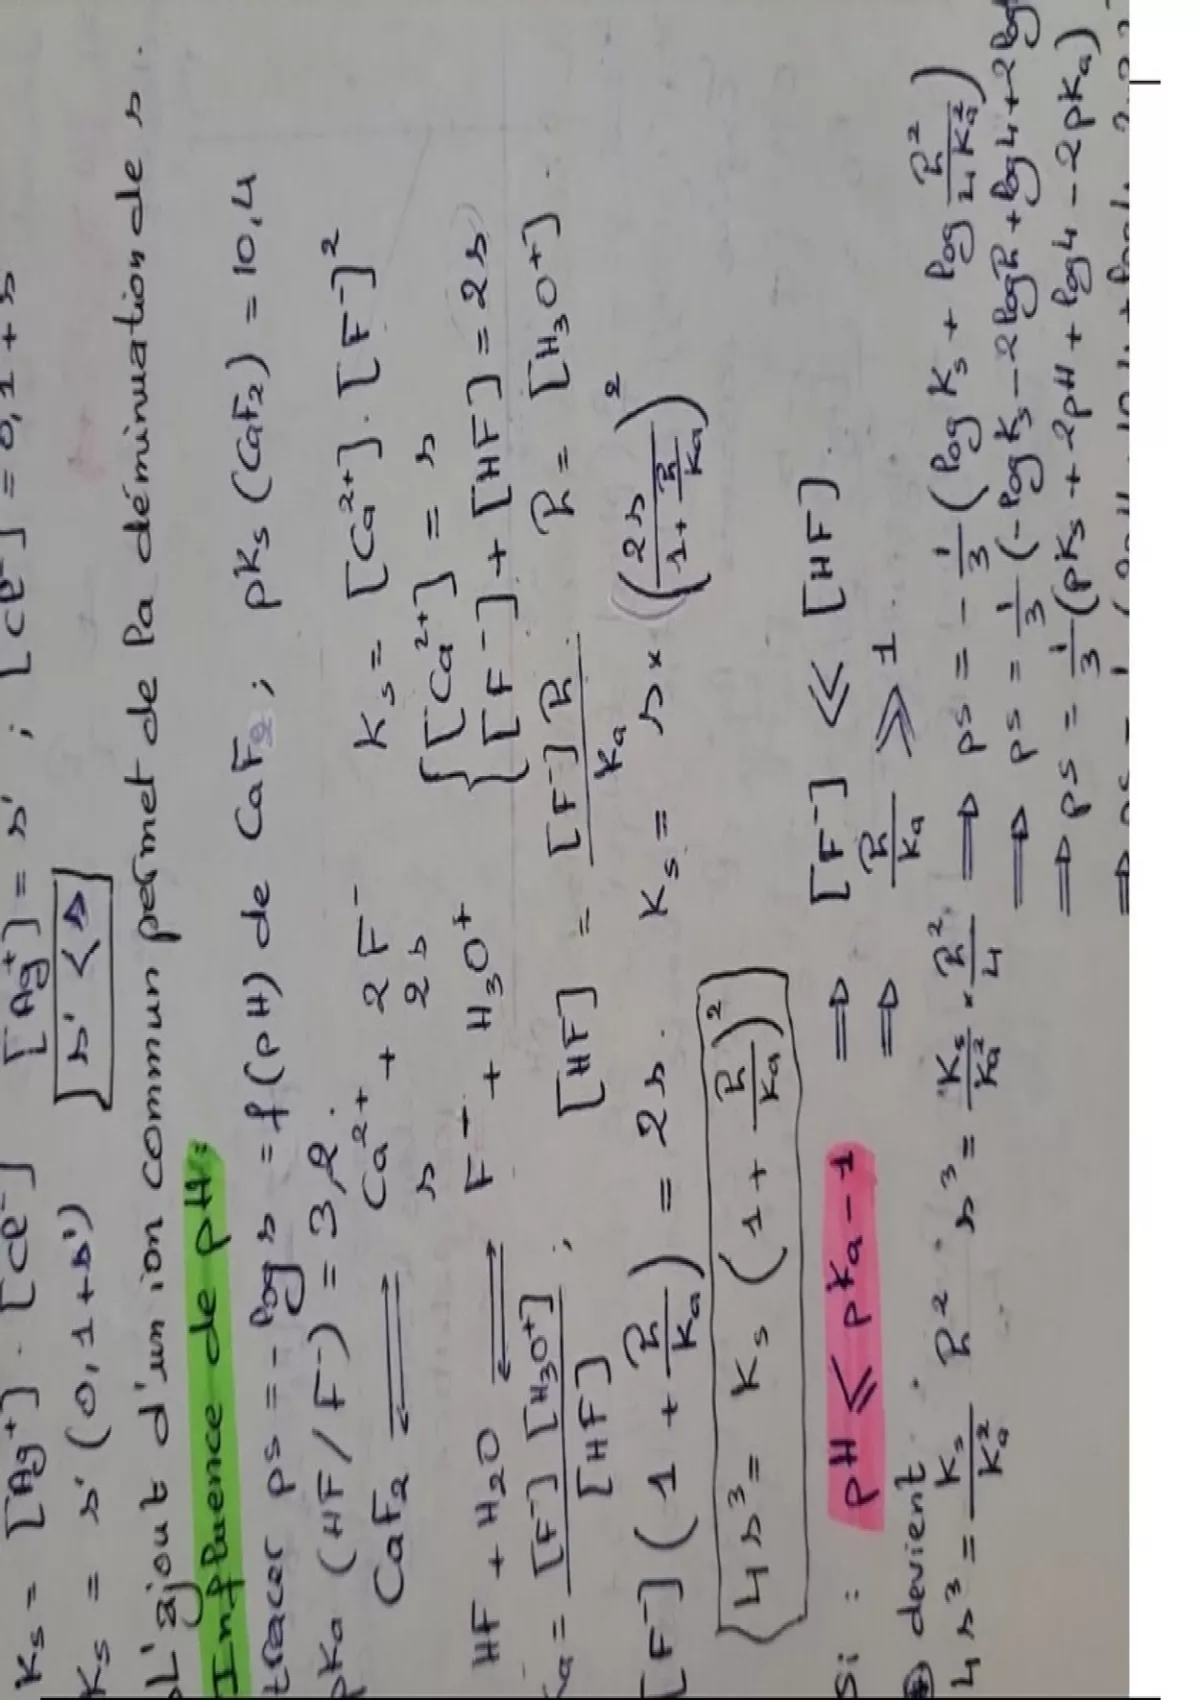 Ks = [Ag⁺] . [Cl⁻]   [Ag⁺] = s' ; [Cl⁻] = 0,1 + s
Ks = s' (0,1 + s')   s' < s
L'ajout d'un ion commun permet de la déminuation de s.
Influence de pH:
tracer ps = - log s = f(pH) de CaF₂ ; pKs (CaF₂) = 10,4
pKa (HF/F⁻) = 3,2.
CaF₂ ⇌ Ca²⁺ + 2F⁻   Ks = [Ca²⁺] . [F⁻]²
s   2s   { [Ca²⁺] = s
HF + H₂O ⇌ F⁻ + H₃O⁺   [F⁻] + [HF] = 2s
Ka = [F⁻][H₃O⁺] / [HF] ;   [HF] = [F⁻] h / Ka   h = [H₃O⁺].
[F⁻] (1 + h/Ka) = 2s.   Ks = s × (2s / (1 + h/Ka))²
4s³ = Ks (1 + h/Ka)²
Si : pH ≤ pKa - 1   ⇒ [F⁻] ≪ [HF]
⇒ h/Ka ≫ 1
devient
4s³ = Ks/Ka² h²   s³ = Ks/Ka² . h²/4   ⇒ ps = - 1/3 (log Ks + log h²/4Ka²)
⇒ ps = 1/3 (- log Ks - 2 log h + log 4 + 2 log
⇒ ps = 1/3 (pKs + 2pH + log 4 - 2pKa)